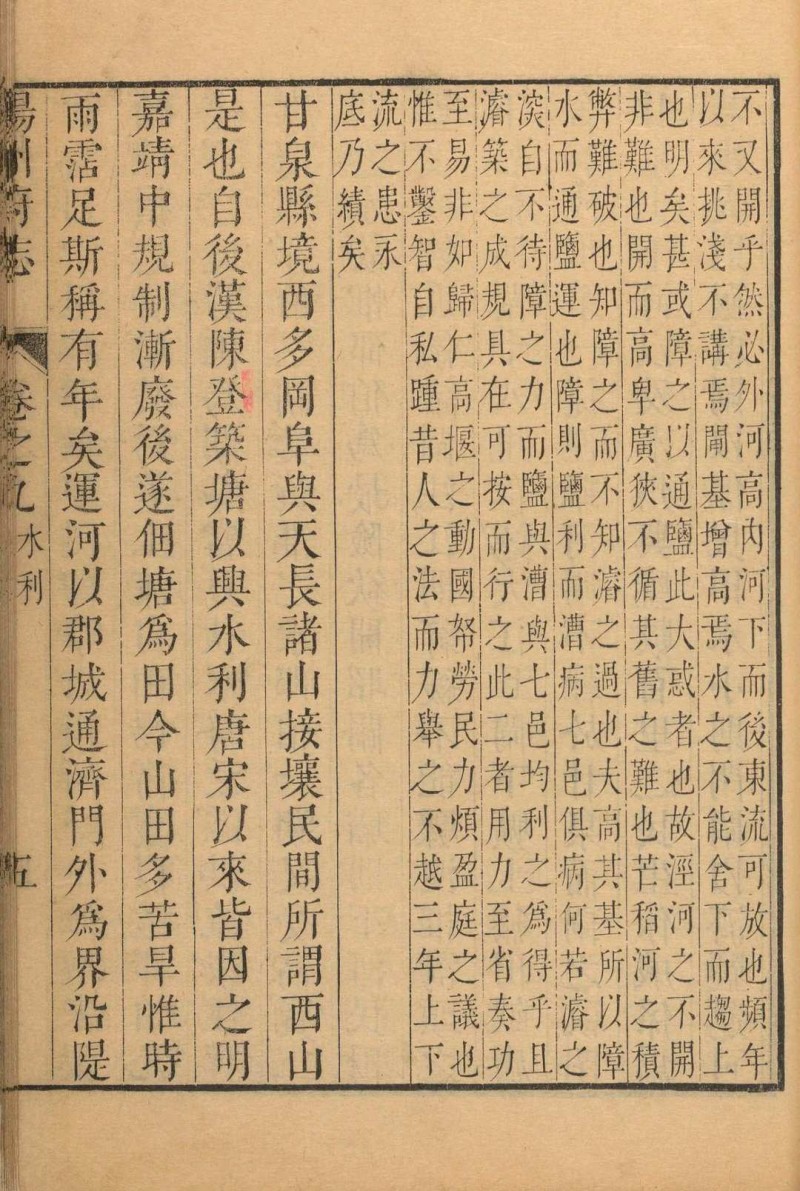 不又開乎然必外河高内河下而後東流可放也頻年
以來挑淺不講焉閘基增高焉水之不能舍下而趨上
也明矣甚或障之以通鹽此大惑者也故涇河之不開
非難也開而高卑廣狹不循其舊之難也芒稻河之積
弊難破也知障之而不知濬之過也夫高其基所以障
水而通鹽運也障則鹽利而漕病七邑俱病何若濬之
湥自不待障之力而鹽與漕與七邑均利之爲得乎且
濬築之成規具在可按而行之此二者用力至省奏功
至易非如歸仁高堰之動國帑勞民力煩盈庭之議也
惟不鑿智自私踵昔人之法而力舉之不越三年上下
流之患永
底乃績矣
甘泉縣境西多岡阜與天長諸山接壤民間所謂西山
是也自後漢陳登築塘以興水利唐宋以來皆因之明
嘉靖中規制漸廢後遂佃塘爲田今山田多苦旱惟時
雨霑足斯稱有年矣運河以郡城通濟門外爲界沿隄
揚州府志
卷之九
水利
五